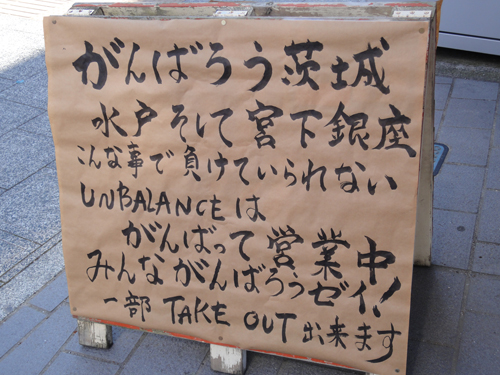 がんばろう茨城
水戸そして宮下銀座
こんな事で負けていられない
UNBALANCEは
がんばって営業中
みんながんばろうゼイ!
一部 TAKE OUT 出来ます